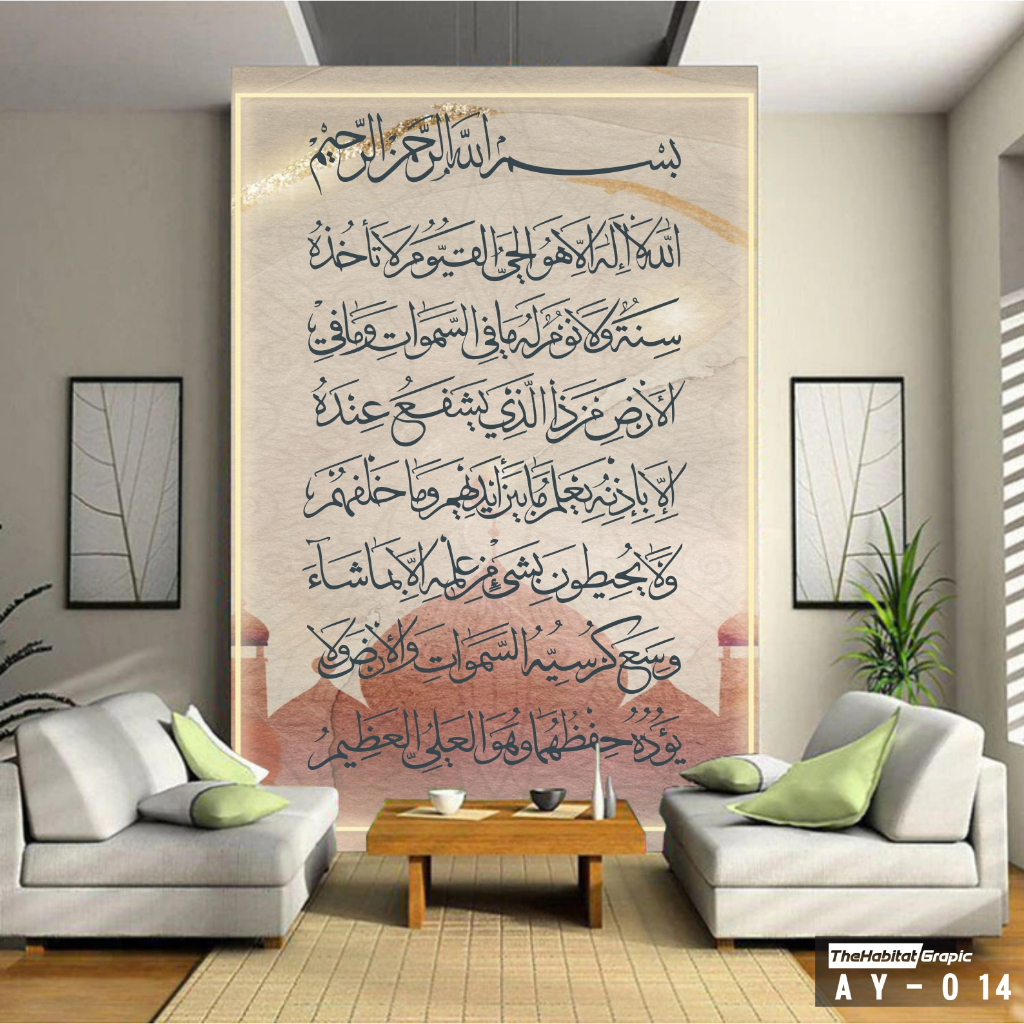 بِسْمِ اللَّهِ الرَّحْمٰنِ الرَّحِيْمِ
اللَّهُ لَا إِلَهَ إِلَّا هُوَ الْحَيُّ الْقَيُّوْمُ لَا تَأْخُذُهُ
سِنَةٌ وَلَا نَوْمٌ لَهُ مَا فِي السَّمٰوَاتِ وَمَا فِي
الْأَرْضِ مَنْ ذَا الَّذِيْ يَشْفَعُ عِنْدَهُ
إِلَّا بِإِذْنِهِ يَعْلَمُ مَا بَيْنَ أَيْدِيْهِمْ وَمَا خَلْفَهُمْ
وَلَا يُحِيْطُوْنَ بِشَيْءٍ مِنْ عِلْمِهِ إِلَّا بِمَا شَاءَ
وَسِعَ كُرْسِيُّهُ السَّمٰوَاتِ وَالْأَرْضَ وَلَا
يَؤُدُهُ حِفْظُهُمَا وَهُوَ الْعَلِيُّ الْعَظِيْمُ
TheHabitatGrapic
AY-014